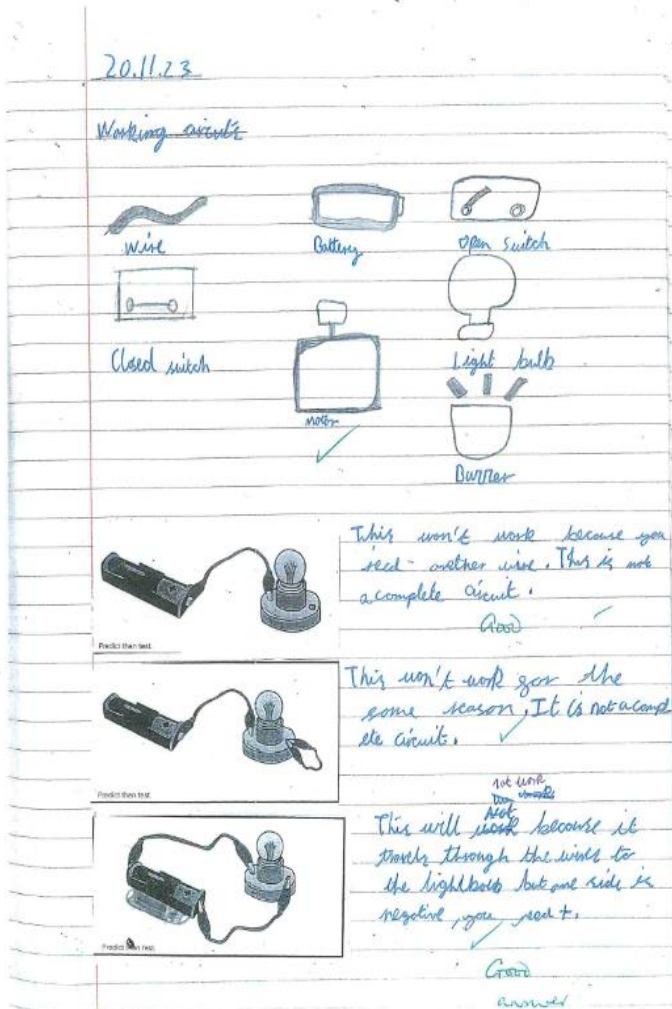 20.11.23
Working circuits
wire
Battery
Open switch
Closed switch
Light bulb
motor
Burrer
This won't work because you
need another wire. This is not
a complete circuit.
Good
Predict then test.
This won't work for the
some reason. It is not a compl
ete circuit.
Predict then test.
not work
This will because it
travels through the wires to
the lightbulb but one side is
negative, you need +.
Predict then test.
Good
answer